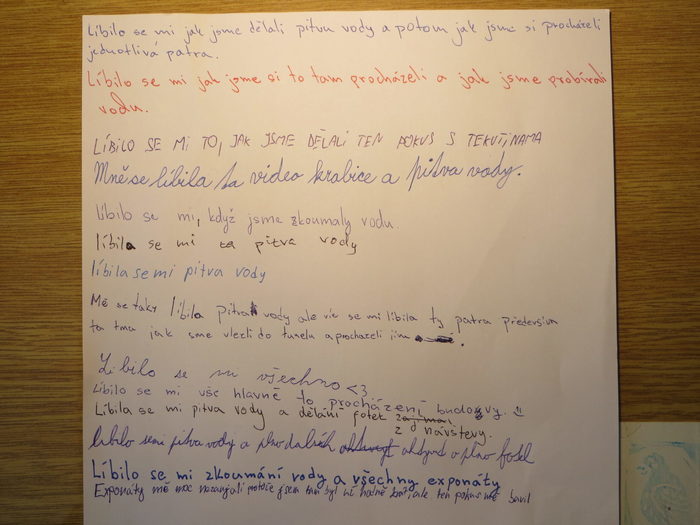 Líbilo se mi jak jsme dělali pitvu vody a potom jak jsme si procházeli
jednotlivá patra.
Líbilo se mi jak jsme si to tam procházeli a jak jsme probírali
vodu.
LÍBILO SE MI TO, JAK JSME DĚLALI TEN POKUS S TEKUTINAMA
Mně se líbila ta video krabice a pitva vody.
líbilo se mi, když jsme zkoumaly vodu.
líbila se mi ta pitva vody
líbila se mi pitva vody
Mě se taky líbila pitva vody ale víc se mi líbila ty patra především
ta tma jak sme vlezli do tunelu a procházeli jím
Líbilo se mi všechno <3
Líbilo se mi vše hlavně to procházení budovy. :)
Líbila se mi pitva vody a dělání fotek
z návštěvy.
líbilo semi pitva vody a plno dalších a plno fotek
Líbilo se mi zkoumání vody a všechny exponáty
Exponáty mě moc nezaujali protože jsem tam byl už hodně krát, ale ten pokus mě bavil